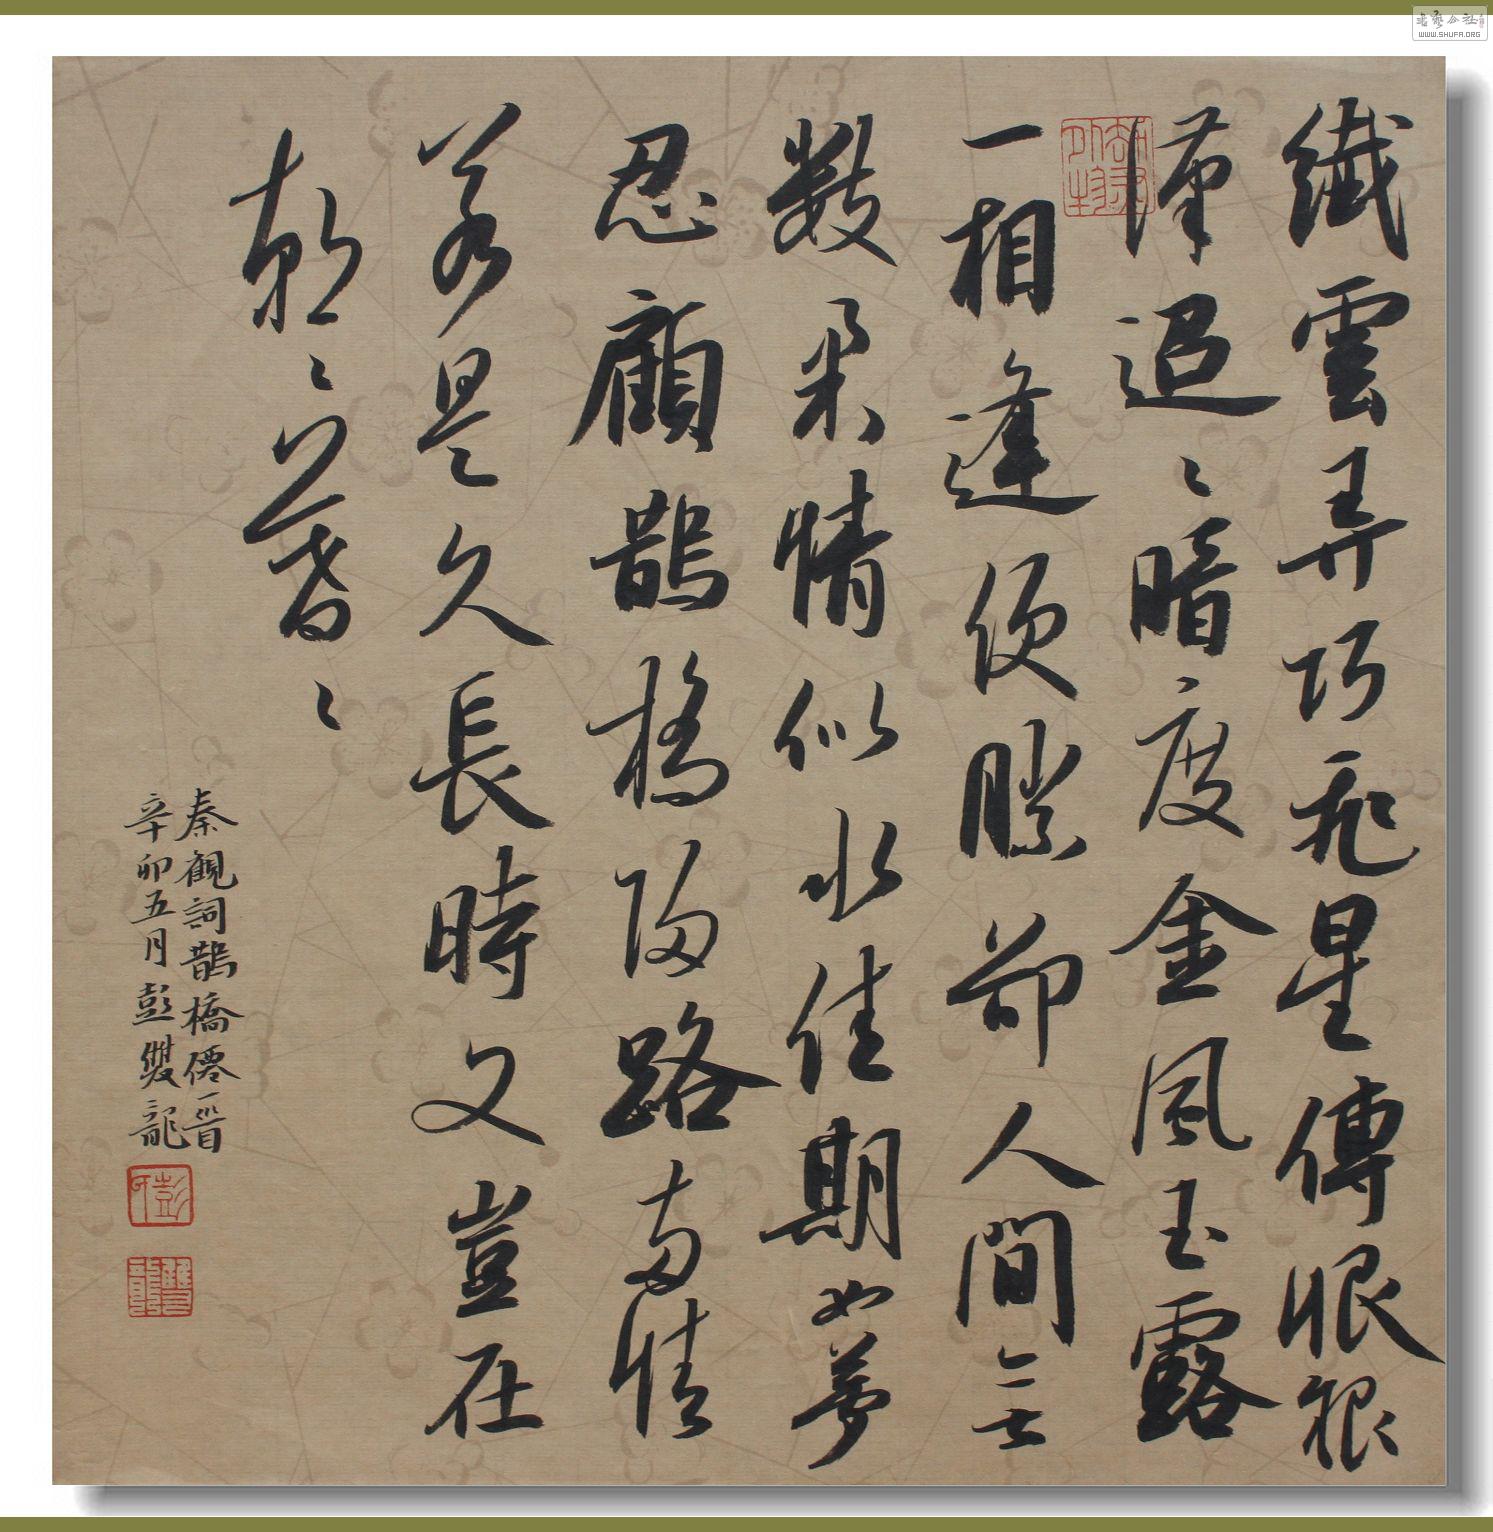 纖雲弄巧飛星傳恨銀
漢迢〻暗度金風玉露
一相逢便勝卻人間無
數柔情似水佳期如夢
忍顧鵲橋歸路兩情
若是久長時又豈在
朝〻暮〻
秦觀詞鵲橋僊一首
辛卯五月彭雙龍
彭
雙龍
書藝公社
WWW.SHUFA.ORG